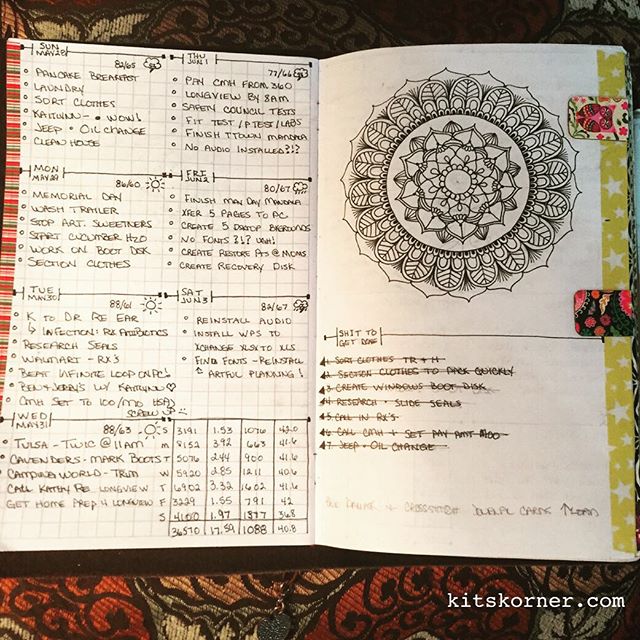 SUN
MAY 28
82/65
PANCAKE BREAKFAST
LAUNDRY
SORT CLOTHES
KAITLYNN - NOWI
JEEP - OIL CHANGE
CLEAN HOUSE
MON
MAY 29
86/60
MEMORIAL DAY
WASH TRAILER
STOP ART. SWEETNERS
START CUCUMBER H2O
WORK ON BOOT DISK
SECTION CLOTHES
TUE
MAY 30
88/61
K TO DR RE EAR
↳ INFECTION: RX ANTIBIOTICS
RESEARCH SEALS
WALMART - RX'S
BEAT INFINITE LOOP ON PC!
BEN & JERRY'S W/ KAITLYNN ♡
CMH SET TO 100/MO
SCREW UP
WED
MAY 31
88/63
TULSA - TWIC @ 11AM
CAVENDERS - MARK BOOTS
CAMPING WORLD - TRIM
CALL KATHY RE LONGVIEW
GET HOME PREP 4 LONGVIEW
THU
JUN 1
77/66
PAY CMH FROM 360
LONGVIEW BY 8AM
SAFETY COUNCIL TESTS
FIT TEST / PTEST / LABS
FINISH TTOWN MANDALA
NO AUDIO INSTALLED?!?
FRI
JUN 2
80/67
FINISH MAY DAY MANDALA
XFER 5 PAGES TO PC
CREATE 5 DSKTOP BKGROUNDS
NO FONTS?!? WAH!
CREATE RESTORE PTS @ MOMS
CREATE RECOVERY DISK
SAT
JUN 3
82/67
REINSTALL AUDIO
INSTALL WPS TO
XCHANGE XLSX TO XLS
FIND FONTS - REINSTALL
ARTFUL PLANNING!
S 8191 1.53 1076 42.0
M 8152 3.92 663 41.6
T 5076 2.44 900 41.6
W 5920 2.85 1211 40.6
T 6902 3.32 1602 41.6
F 3229 1.55 791 42
S 4100 1.97 1377 36.8
36570 17.59 1088 40.8
SHIT TO
GET DONE
1. SORT CLOTHES TR + H
2. SECTION CLOTHES TO PACK QUICKLY
3 CREATE WINDOWS BOOT DISK
4 RESEARCH - SLIDE SEALS
5. CALL IN RX'S
6. CALL CMH + SET PAY AMT MOO
7. JEEP - OIL CHANGE
CARDS
kitskorner.com